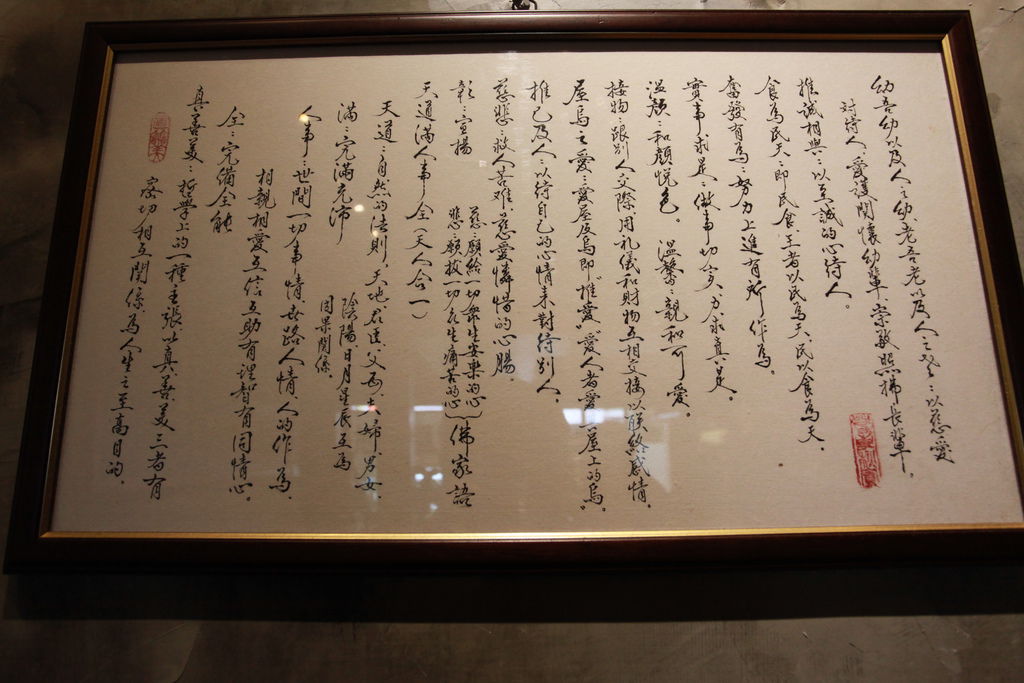 幼吾幼以及人之幼、老吾老以及人之老：以慈愛
對待人、愛護関懷幼輩、崇敬照拂長輩。
推誠相與：以至誠的心待人。
食為民天：即民食、王者以民為天、民以食為天。
奮發有為：努力上進有所作為。
實事求是：做事切实、力求真是。
溫顏：和顏悅色。溫馨：親和可愛。
接物：跟別人交際用礼儀和財物互相交接以联絡感情。
屋烏之愛：愛屋及烏即“推愛”愛人者愛一屋上的烏。”
推己及人：以待自己的心情来對待別人。
慈悲：救人苦难、慈愛憐惜的心腸。
彰：宣揚
慈 慈願給一切衆生安樂的心
悲 悲願救一切众生痛苦的心
佛家語
天道滿人事全（天人合一）
天道：自然的法則，天地、君臣、父母、夫婦、男女、
陰陽、日月星辰互為
因果関係。
滿：完滿充沛
人事：世間一切事情、世路人情、人的作為、
相親相愛互信互助有理智有同情心。
全：完備全能
真善美：哲學上的一種主張、以真、善、美三者有
密切相互関係、為人生之至高目的。